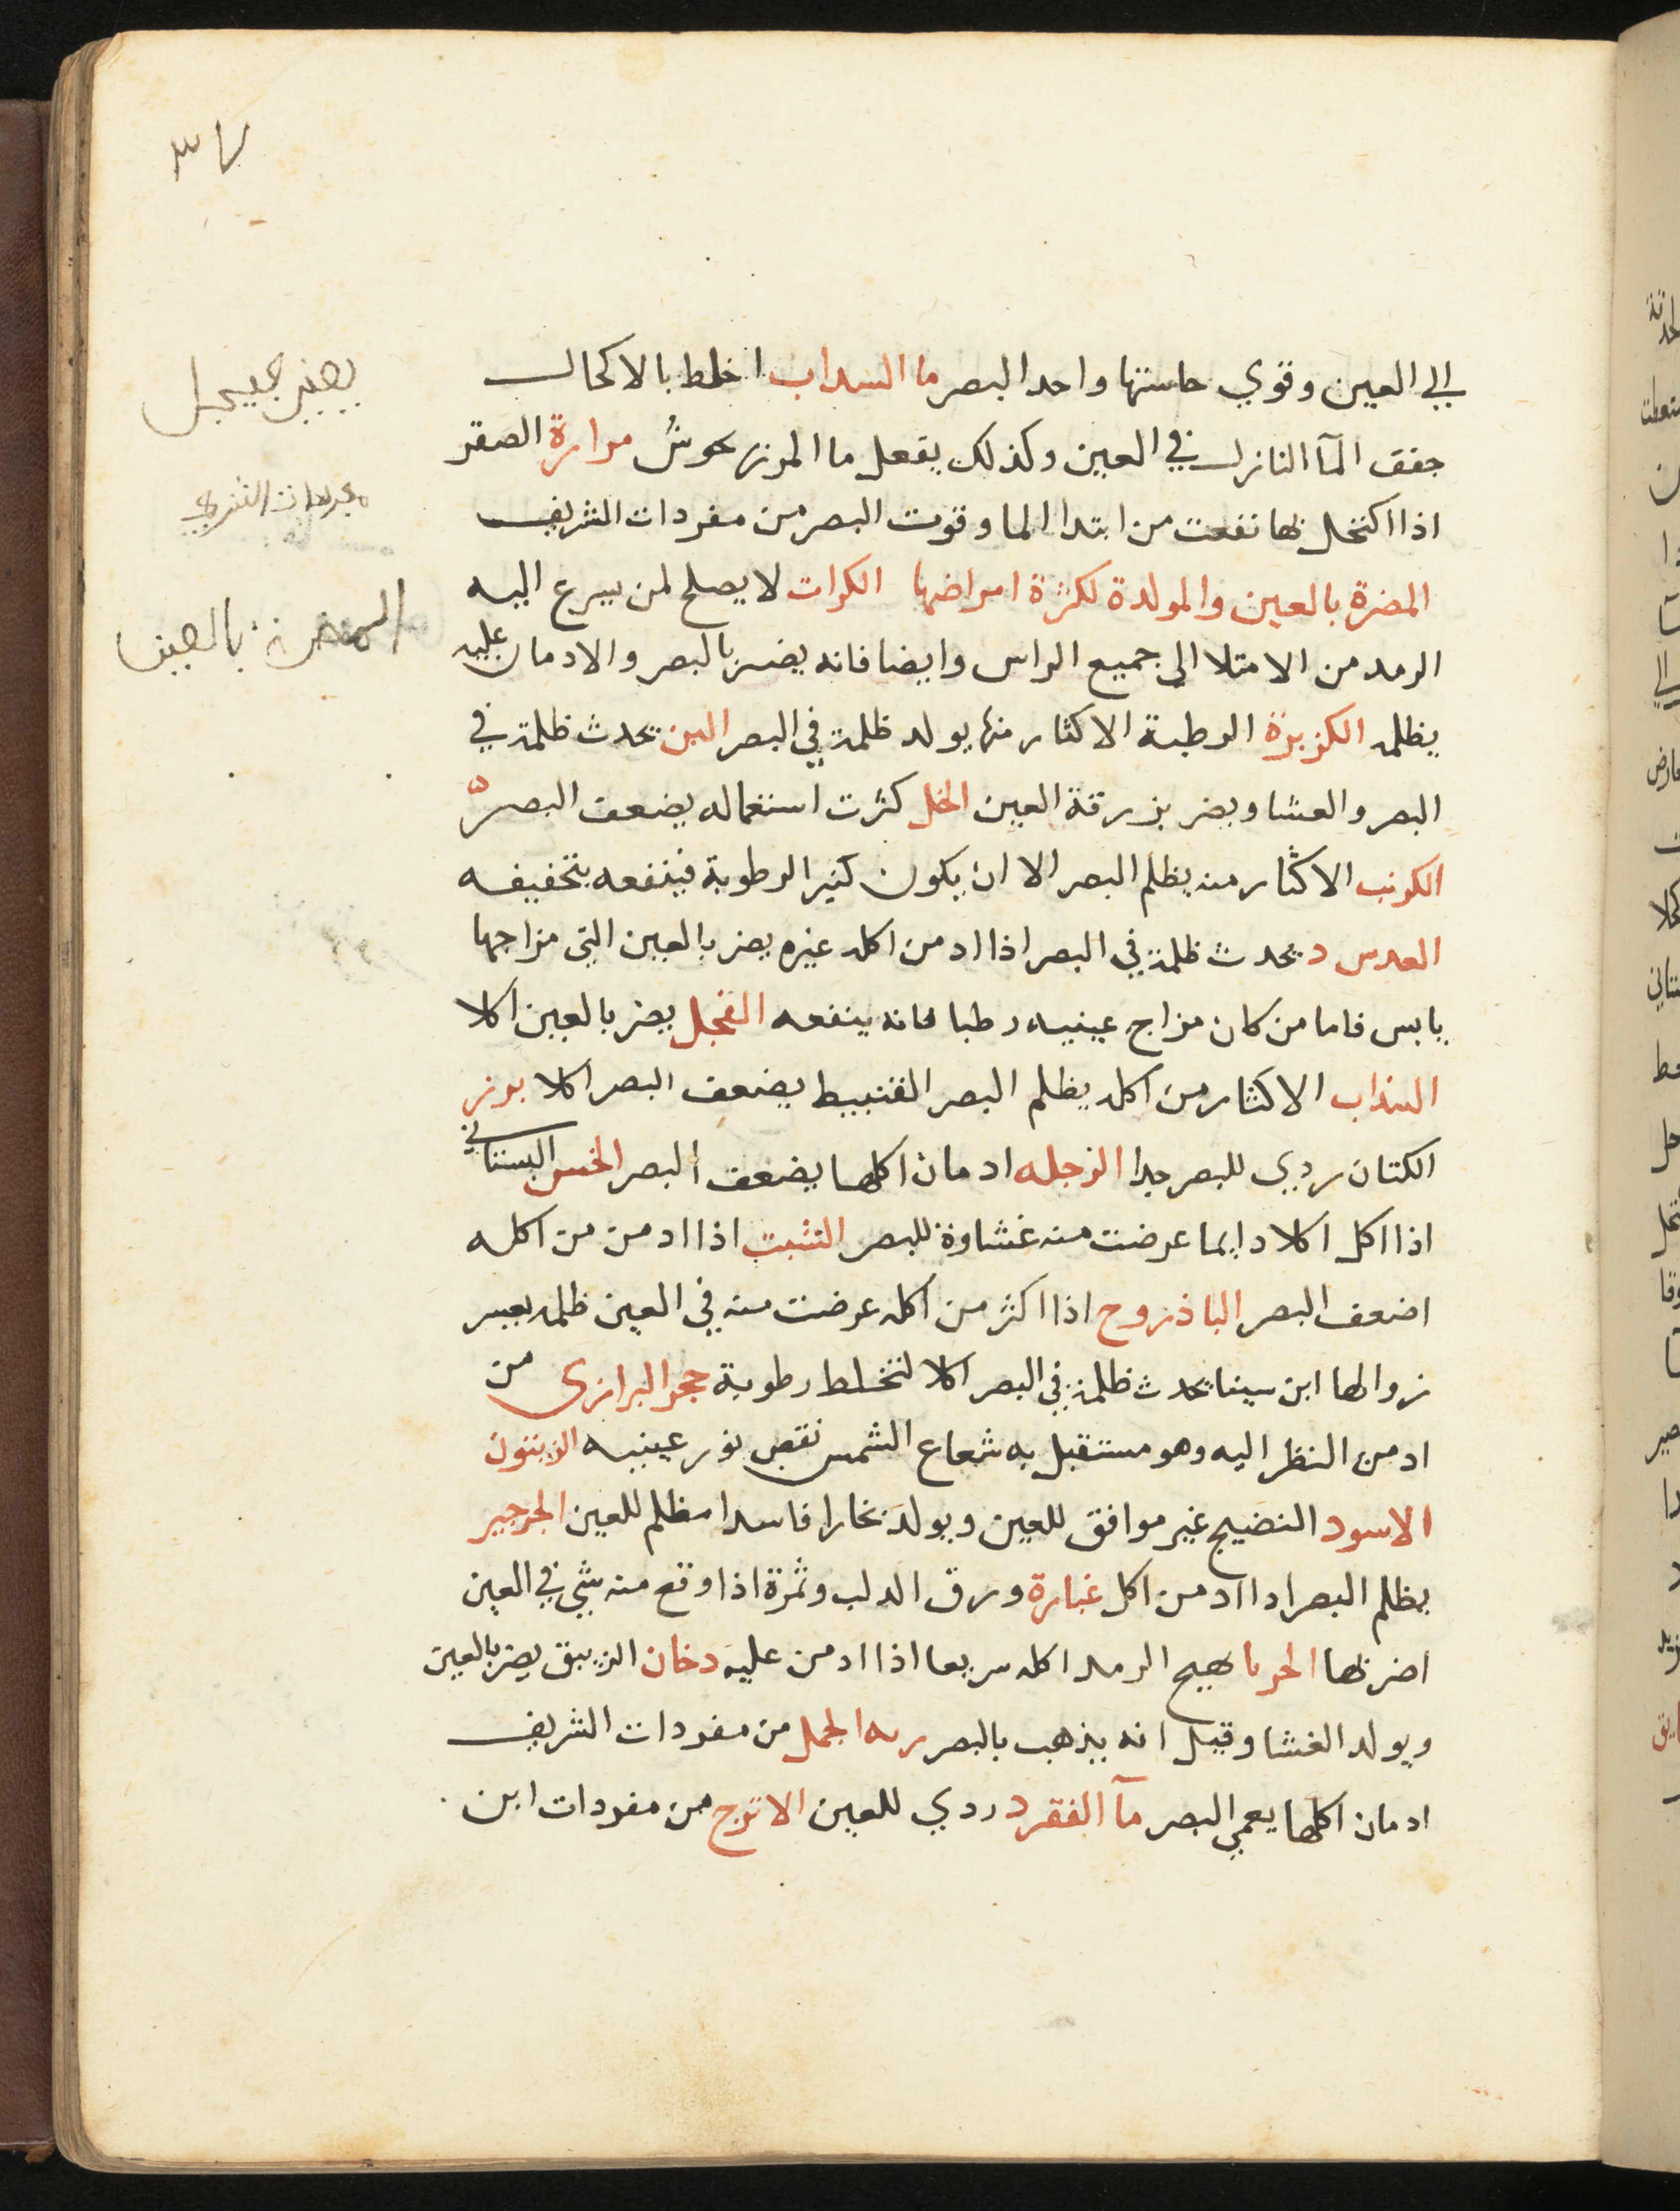 الي العين وقوي حاستها واحد البصر ما السداب اخلط بالاكحال
جفف المآ النازل في العين وكذلك يفعل ما المرزنحوش مرارة الصقر
اذا اكتحل بها نفعت من ابتدا الما وقوت البصر من مفردات الشريف
المضرة بالعين والمولدة لكثرة امراضها الكرات لا يصلح لمن يسرع اليه
الرمد من الامتلا الي جميع الراس وايضا فانه يضر بالبصر والادمان عليه
يظلمه الكزبرة الرطبة الاكثار منها يولد ظلمة في البصر اللبن يحدث ظلمة في
البصر والعشا ويضر بزرقة العين الخل كثرت استعماله يضعف البصر
الكرنب الاكثار منه يظلم البصر الا ان يكون كثير الرطوبة فينفعه بتخفيفه
العدس د يحدث ظلمة في البصر اذا ادمن اكله غيره يضر بالعين التي مزاجها
يابس فاما من كان مزاج عينيه رطبا فانه ينفعه الفجل يضر بالعين اكلا
السذاب الاكثار من اكله يظلم البصر القنبيط يضعف البصر اكلا بزر
الكتان ردي للبصر جدا الرجله ادمان اكلها يضعف البصر الخس البستاني
اذا اكل اكلا دايما عرضت منه غشاوة للبصر الشبت اذا ادمن من اكله
اضعف البصر الباذروح اذا اكثر من اكله عرضت منه في العين ظلمه يعسر
زوالها ابن سينا يحدث ظلمة في البصر اكلا لتخلط رطوبة حجر البرازى من
ادمن النظر اليه وهو مستقبل به شعاع الشمس نقص نور عينيه الزيتون
الاسود النضيج غير موافق للعين ويولد بخارا فاسدا مظلم للعين الجرجير
يظلم البصر اذا ادمن اكل غبارة ورق الدلب وثمرة اذا وقع منه شي في العين
اضر بها الحرنا يهيج الرمد اكله سريعا اذا ادمن عليه دخان الزيبق يضر بالعين
ويولد الغشا وقيل انه يذهب بالبصر ريه الجمل من مفردات الشريف
ادمان اكلها يعمي البصر مآ الفقرد ردي للعين الاترج من مفردات ابن
المضرة بالعين